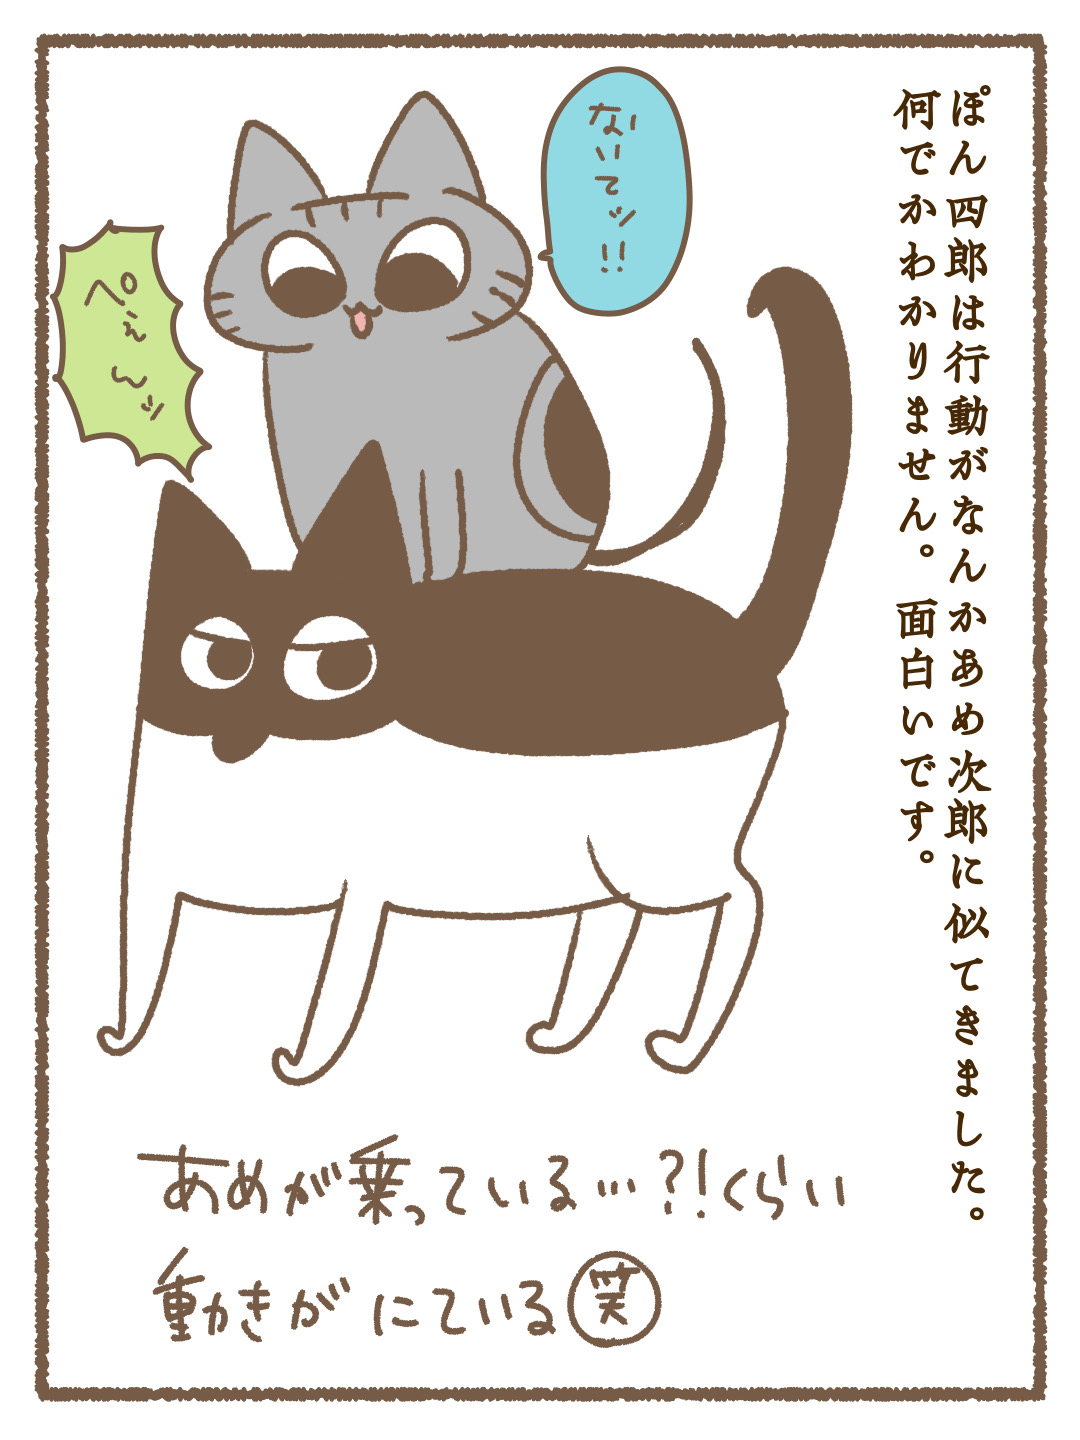 ぽん四郎は行動がなんかあめ次郎に似てきました。
何でかわかりません。面白いです。
ないてッ!!
ペぇ~ッ
あめが乗っている…?!くらい
動きがにている笑